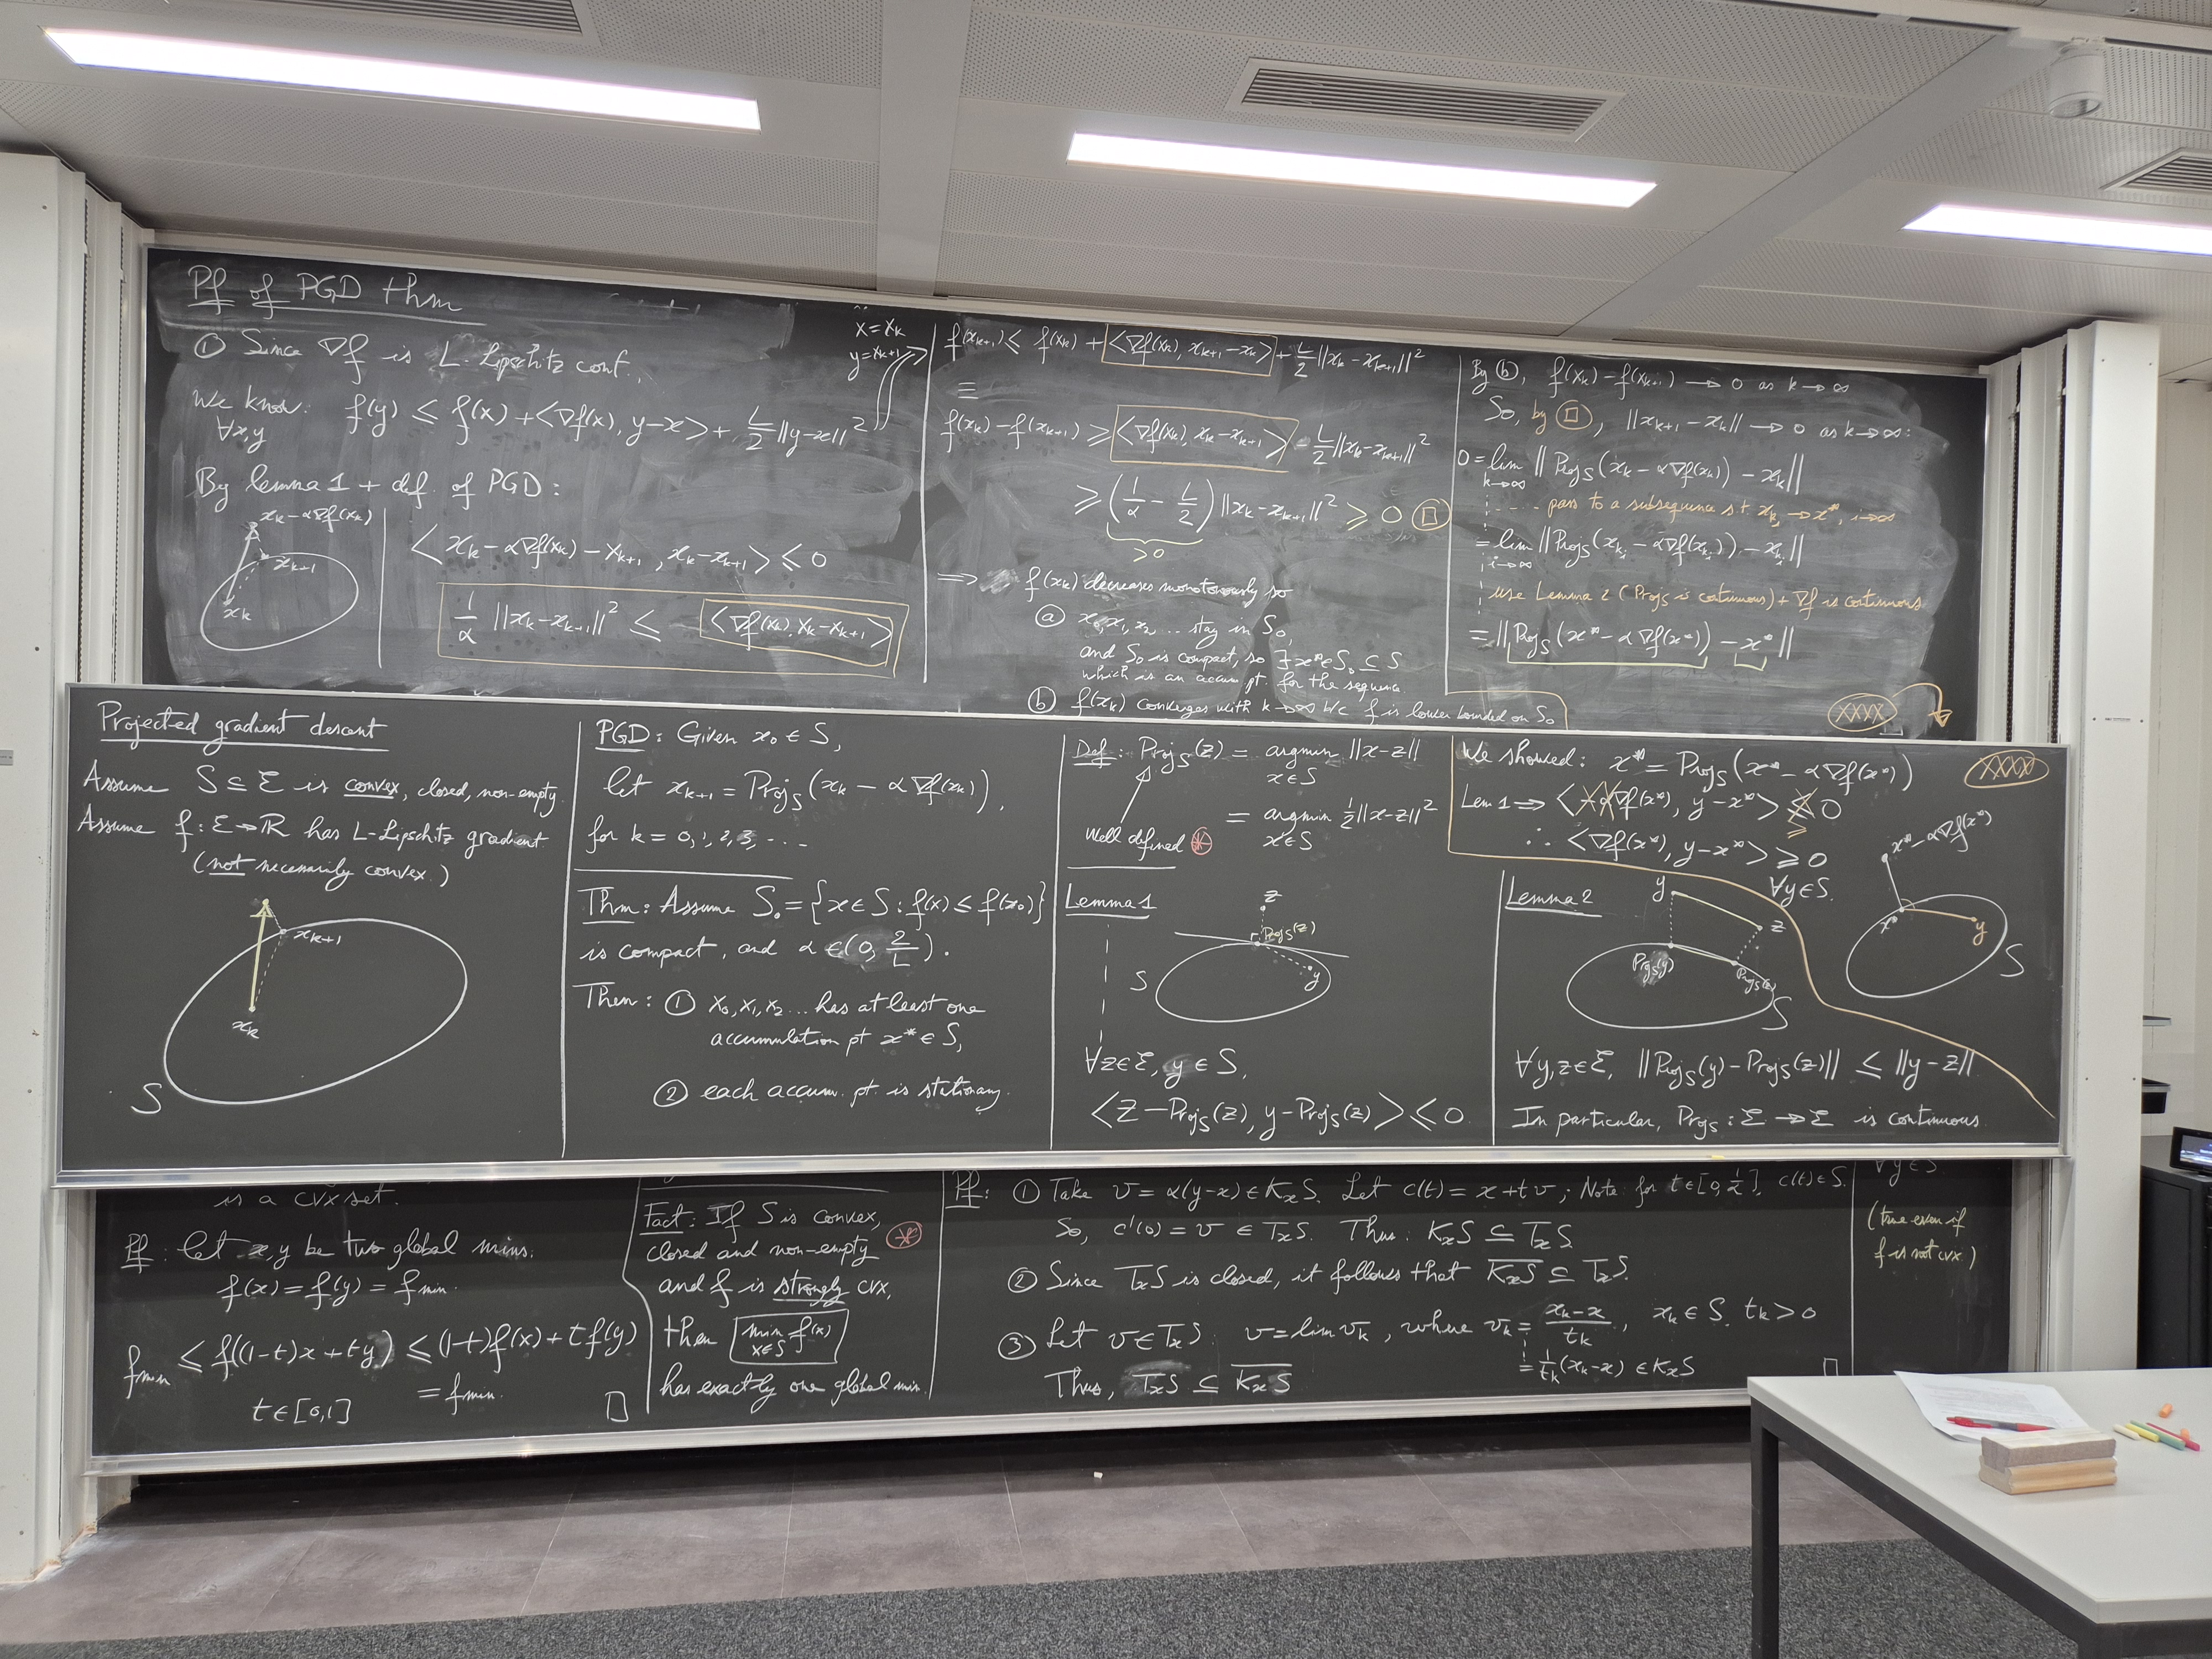 Pf of PGD thm
① Since ∇f is L-Lipschitz cont.,
We know: f(y) ≤ f(x) + <∇f(x), y-x> + L/2 ||y-x||²
∀x,y
By lemma 1 + def. of PGD:
x_k - α∇f(x_k)
x_{k+1}
x_k
<x_k - α∇f(x_k) - x_{k+1}, x_k - x_{k+1}> ≤ 0
1/α ||x_k - x_{k+1}||² ≤ <∇f(x_k), x_k - x_{k+1}>
x = x_k
y = x_{k+1}
f(x_{k+1}) ≤ f(x_k) + <∇f(x_k), x_{k+1} - x_k> + L/2 ||x_k - x_{k+1}||²
≡
f(x_k) - f(x_{k+1}) ≥ <∇f(x_k), x_k - x_{k+1}> - L/2 ||x_k - x_{k+1}||²
≥ (1/α - L/2) ||x_k - x_{k+1}||² ≥ 0 □
> 0
⟹ f(x_k) decreases monotonously so
ⓐ x_0, x_1, x_2 ... stay in S_0,
and S_0 is compact, so ∃ x* ∈ S_0 ⊆ S
which is an accum. pt. for the sequence
ⓑ f(x_k) converges with k→∞ b/c f is lower bounded on S_0
By ⓑ, f(x_k) - f(x_{k+1}) → 0 as k → ∞
So, by □, ||x_{k+1} - x_k|| → 0 as k → ∞:
0 = lim_{k→∞} ||Proj_S(x_k - α∇f(x_k)) - x_k||
pass to a subsequence s.t. x_{k_i} → x*, i→∞
= lim_{i→∞} ||Proj_S(x_{k_i} - α∇f(x_{k_i})) - x_{k_i}||
use Lemma 2 (Proj_S is continuous) + ∇f is continuous
= ||Proj_S(x* - α∇f(x*)) - x*||
XXXX
Projected gradient descent
Assume S ⊆ ℰ is convex, closed, non-empty.
Assume f: ℰ → ℝ has L-Lipschitz gradient
(not necessarily convex.)
x_{k+1}
x_k
S
PGD: Given x_0 ∈ S,
let x_{k+1} = Proj_S(x_k - α∇f(x_k)),
for k = 0, 1, 2, 3, ...
Thm: Assume S_0 = {x ∈ S : f(x) ≤ f(x_0)}
is compact, and α ∈ (0, 2/L).
Then: ① x_0, x_1, x_2 ... has at least one
accumulation pt x* ∈ S,
② each accum. pt. is stationary.
Def: Proj_S(z) = argmin_{x∈S} ||x-z||
= argmin_{x∈S} 1/2 ||x-z||²
Well defined *
Lemma 1
z
Proj_S(z)
y
S
∀z∈ℰ, y ∈ S,
<z - Proj_S(z), y - Proj_S(z)> ≤ 0
We showed: x* = Proj_S(x* - α∇f(x*))
XXXX
Lem 1 ⟹ <-α∇f(x*), y - x*> ≤ 0
≥
∴ <∇f(x*), y - x*> ≥ 0
∀y∈S.
x* - α∇f(x*)
x*
y
S
Lemma 2
y
z
Proj_S(y)
Proj_S(z)
S
∀y,z∈ℰ, ||Proj_S(y) - Proj_S(z)|| ≤ ||y - z||
In particular, Proj_S : ℰ → ℰ is continuous.
is a cvx set.
Pf: let x,y be two global mins.
f(x) = f(y) = f_min.
f_min ≤ f((1-t)x + ty) ≤ (1-t)f(x) + t f(y)
= f_min.
t ∈ [0,1]
□
Fact: If S is convex,
closed and non-empty *
and f is strongly cvx,
then min_{x∈S} f(x)
has exactly one global min.
Pf: ① Take v = α(y-x) ∈ K_xS. Let c(t) = x + tv; Note: for t∈[0, 1/α], c(t)∈S.
So, c'(0) = v ∈ T_xS. Thus: K_xS ⊆ T_xS
② Since T_xS is closed, it follows that \overline{K_xS} ⊆ T_xS.
③ Let v∈T_xS: v = lim v_k, where v_k = (x_k - x)/t_k, x_k ∈ S, t_k > 0
= 1/t_k (x_k - x) ∈ K_xS
Thus, T_xS ⊆ \overline{K_xS}
□
∀y∈S.
(true even if
f is not cvx.)